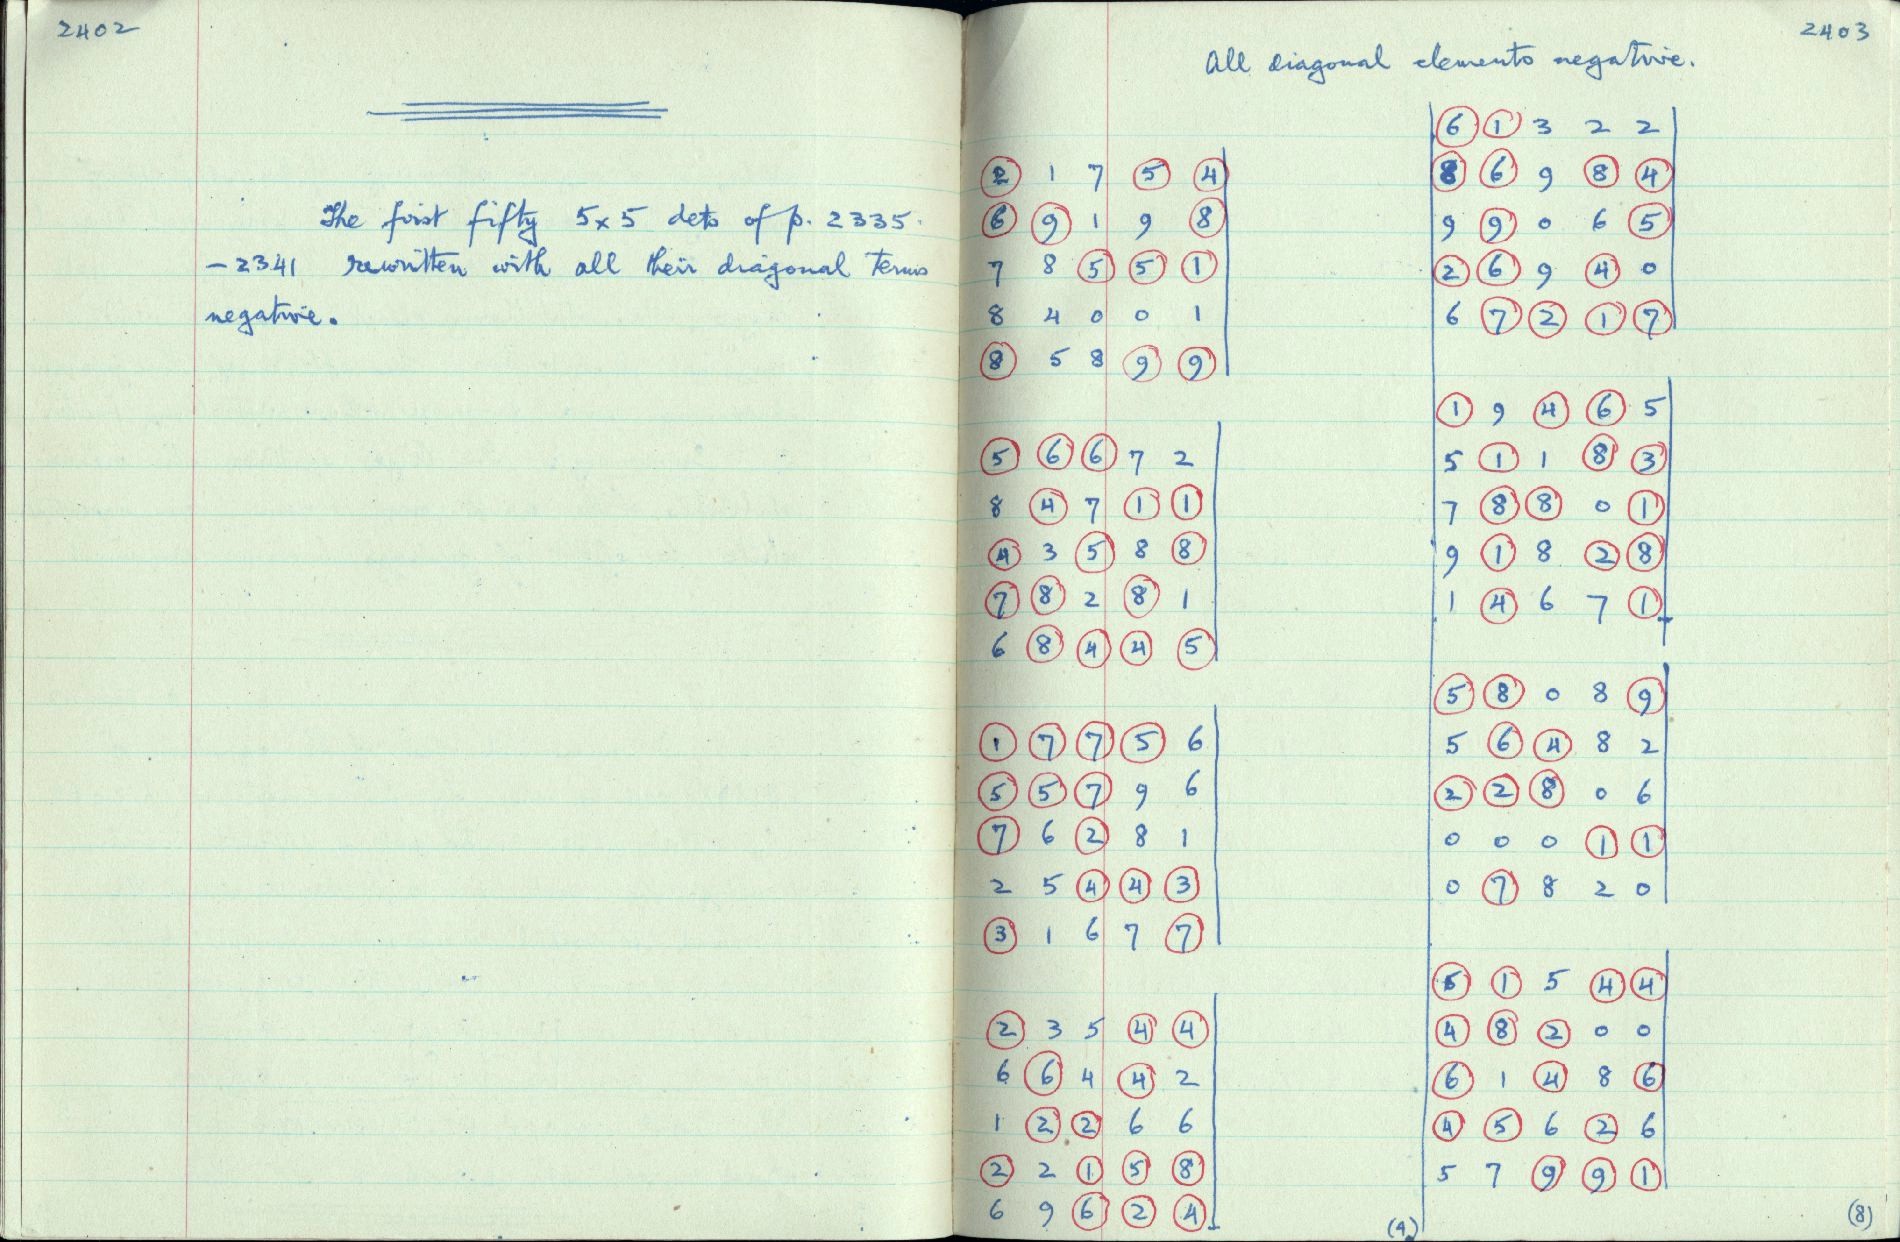 2402
The first fifty 5x5 dets of p. 2335
- 2341 rewritten with all their diagonal terms
negative.
2403
All diagonal elements negative.
2 1 7 5 4
6 9 1 9 8
7 8 5 5 1
8 4 0 0 1
8 5 8 9 9
5 6 6 7 2
8 4 7 1 1
4 3 5 8 8
7 8 2 8 1
6 8 4 4 5
1 7 7 5 6
5 5 7 9 6
7 6 2 8 1
2 5 4 4 3
3 1 6 7 7
2 3 5 4 4
6 6 4 4 2
1 2 2 6 6
2 2 1 5 8
6 9 6 2 4
(4)
6 1 3 2 2
8 6 9 8 4
9 9 0 6 5
2 6 9 4 0
6 7 2 1 7
1 9 4 6 5
5 1 1 8 3
7 8 8 0 1
9 1 8 2 8
1 4 6 7 1
5 8 0 8 9
5 6 4 8 2
2 2 8 0 6
0 0 0 1 1
0 7 8 2 0
5 1 5 4 4
4 8 2 0 0
6 1 4 8 6
4 5 6 2 6
5 7 9 9 1
(8)